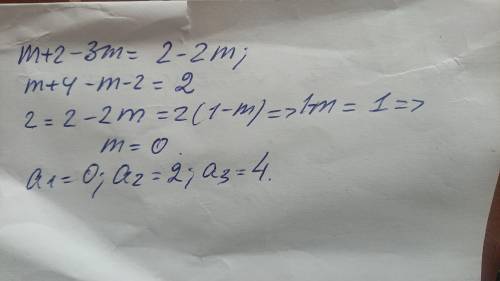 m+2-3m = 2-2m;
m+4-m-2 = 2
2 = 2-2m = 2(1-m) => 1m = 1 =>
m = 0.
a1 = 0; a2 = 2; a3 = 4.